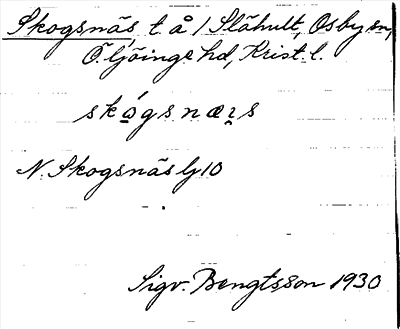 Skogsnäs, t. å / Slähult, Osby sn,
Ö. Göinge hd, Krist. l.
skógsnæɪs
N. Skogsnäs lj 10
Sigv. Bengtsson 1930